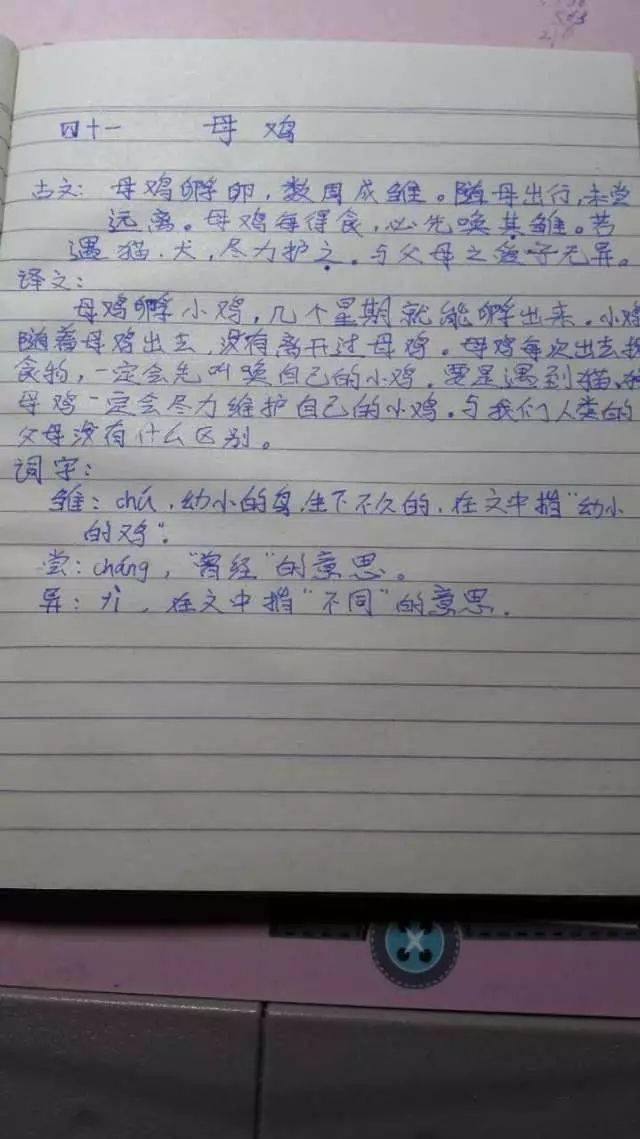 四十一 母鸡
古文: 母鸡孵卵,数周成雏。随母出行,未尝
远离。母鸡每得食,必先唤其雏。若
遇猫、犬,尽力护之。与父母之爱子无异。
译文:
母鸡孵小鸡,几个星期就能孵出来。小鸡
随着母鸡出去,没有离开过母鸡。母鸡每次出去找
食物,一定会先叫唤自己的小鸡。要是遇到猫、
母鸡一定会尽力维护自己的小鸡。与我们人类的
父母没有什么区别。
词字:
雏: chú,幼小的鸟,生下不久的,在文中指"幼小
的鸡".
尝: cháng,"曾经"的意思。
异: yì,在文中指"不同"的意思.